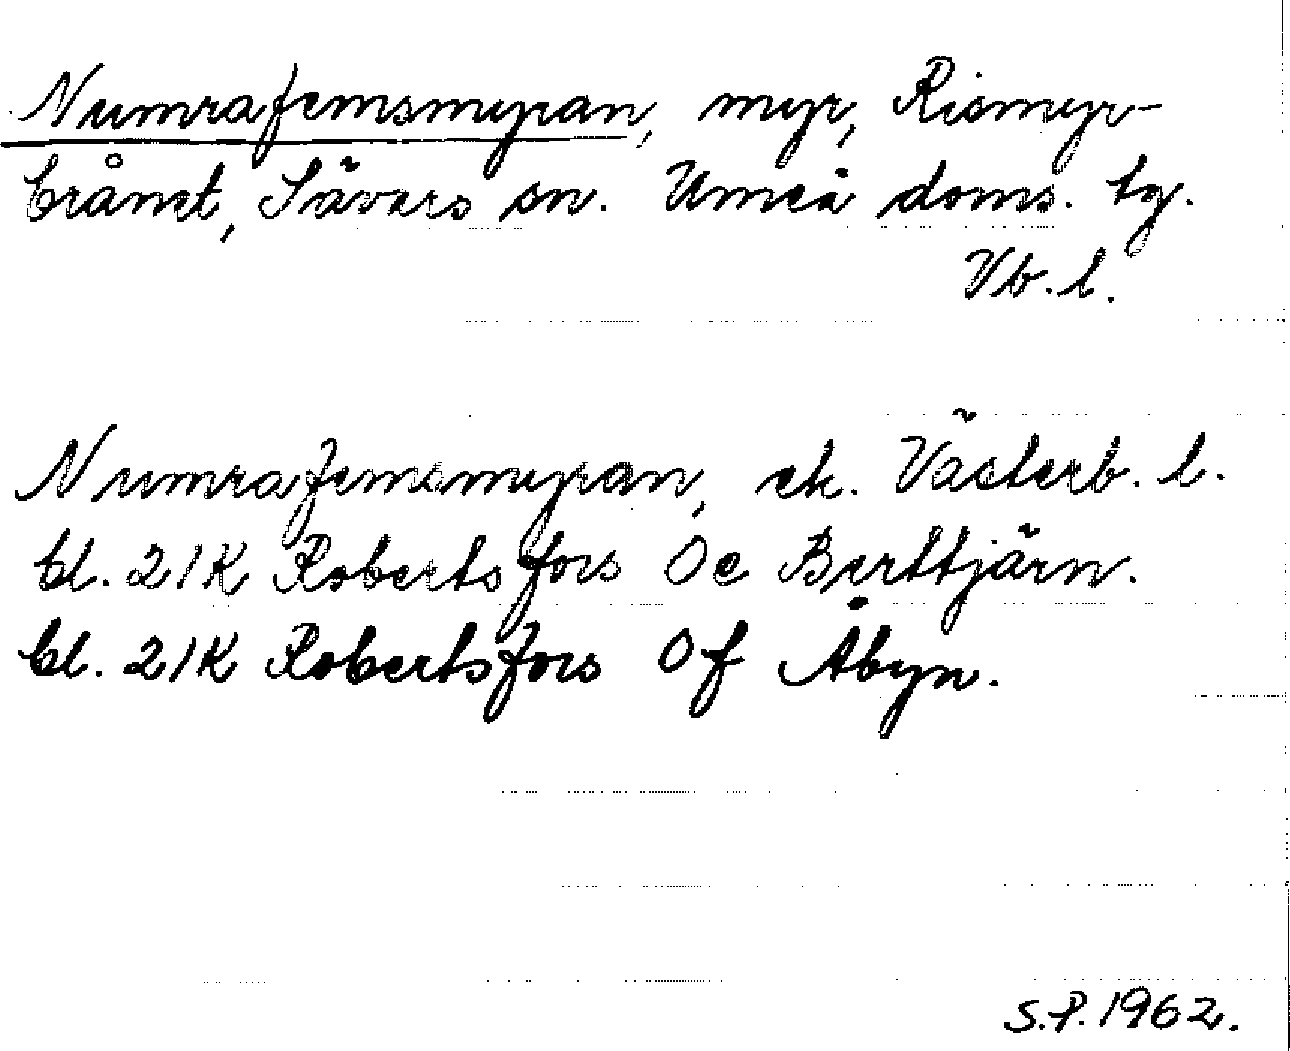 Numrafemsmyran, myr, Rismyr-
brånet, Sävars sn. Umeå doms. tg.
Vb. l.
Numrafemsmyran, ek. Västerb. l.
bl. 21K Robertsfors Oe Berttjärn.
bl. 21K Robertsfors Of Åbyn.
S.P. 1962.